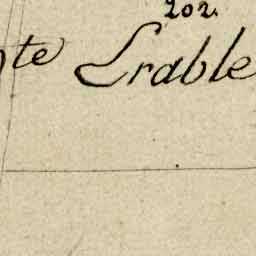 202.
te Erable